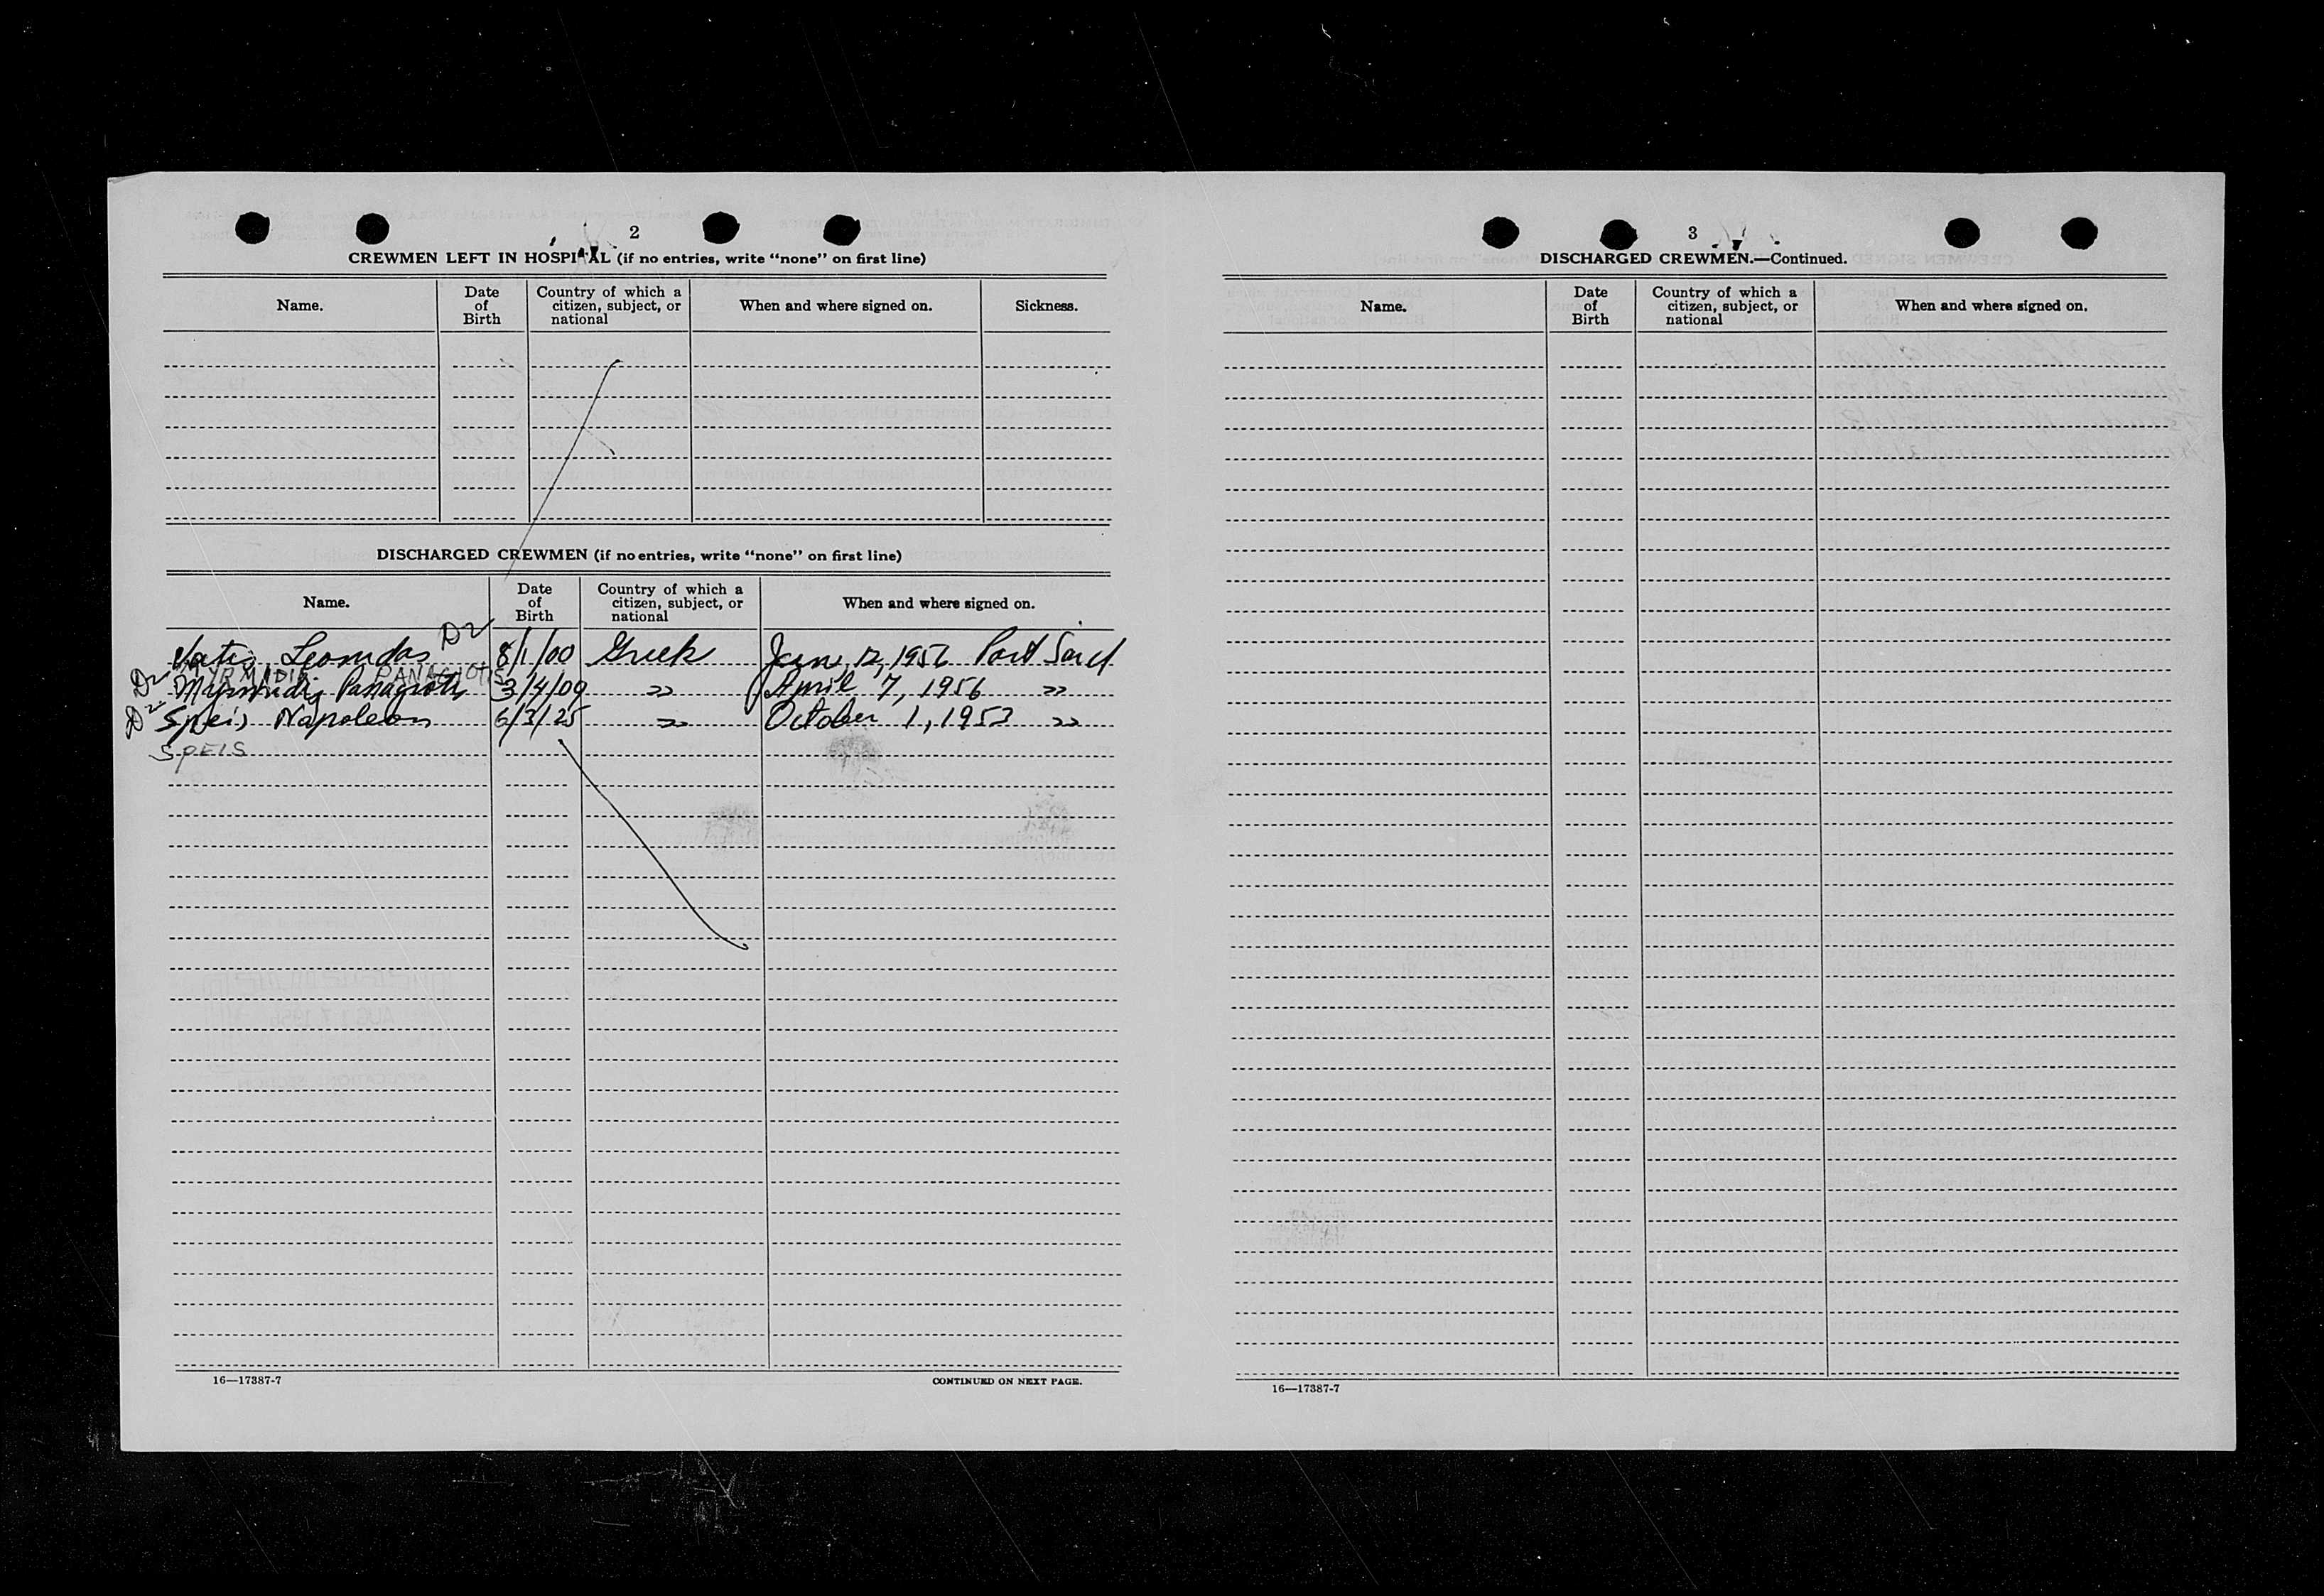 2
CREWMEN LEFT IN HOSPITAL (if no entries, write “none” on first line)
Name. Date of Birth Country of which a citizen, subject, or national When and where signed on. Sickness.
DISCHARGED CREWMEN (if no entries, write “none” on first line)
Name. Date of Birth Country of which a citizen, subject, or national When and where signed on.
Leonidas D2 8/1/00 Greek Jan, 12, 1956 Port Said
MYRMIDIS PANAGIOTIS
D2 Myrmidis Panagiotis 3/4/09 " April 7, 1956 "
D2 Speis Napoleon 6/3/25 " October 1, 1953 "
SPEIS
16—17387-7 CONTINUED ON NEXT PAGE.
3
DISCHARGED CREWMEN.—Continued.
Name. Date of Birth Country of which a citizen, subject, or national When and where signed on.
16—17387-7